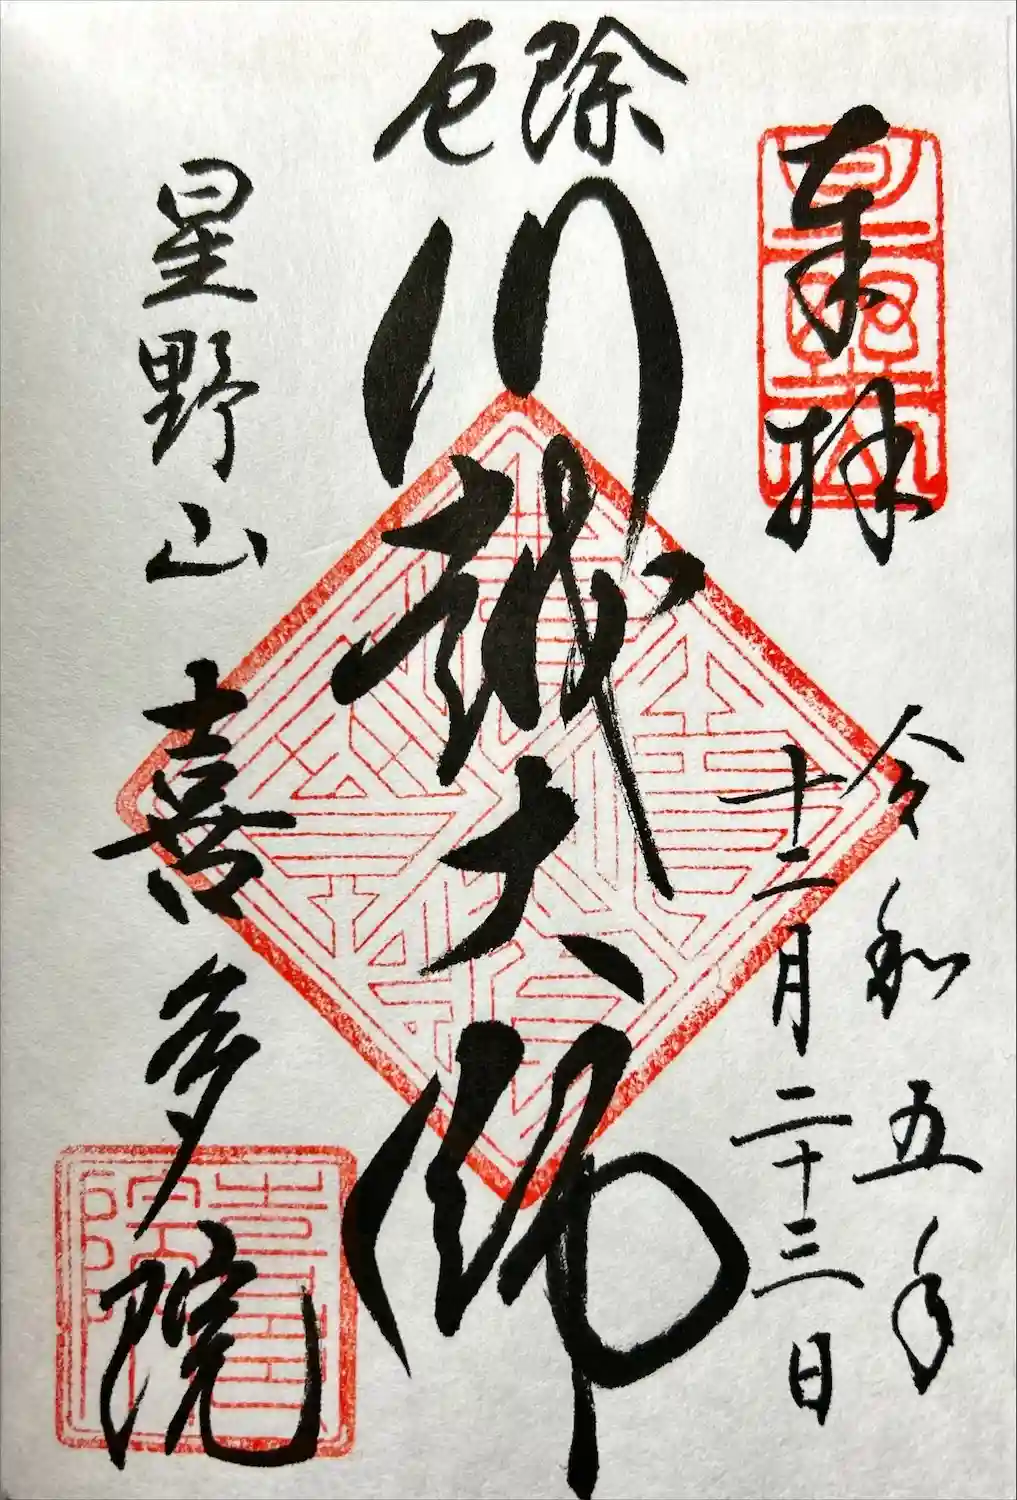 奉拝
令和五年
十二月二十三日
除厄
川越大師
星野山
喜多院